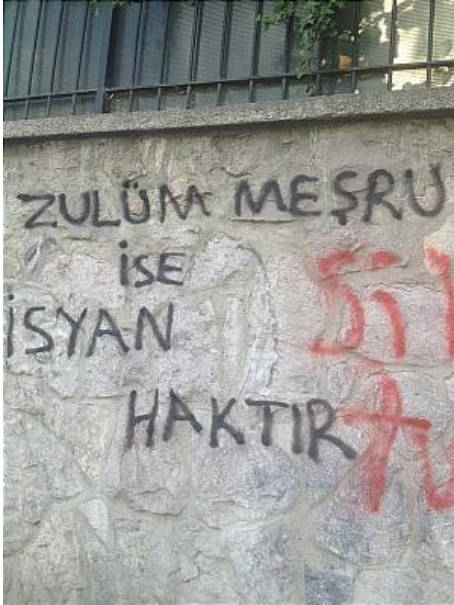 ZULÜM MEŞRU
İSE
İSYAN
HAKTIR